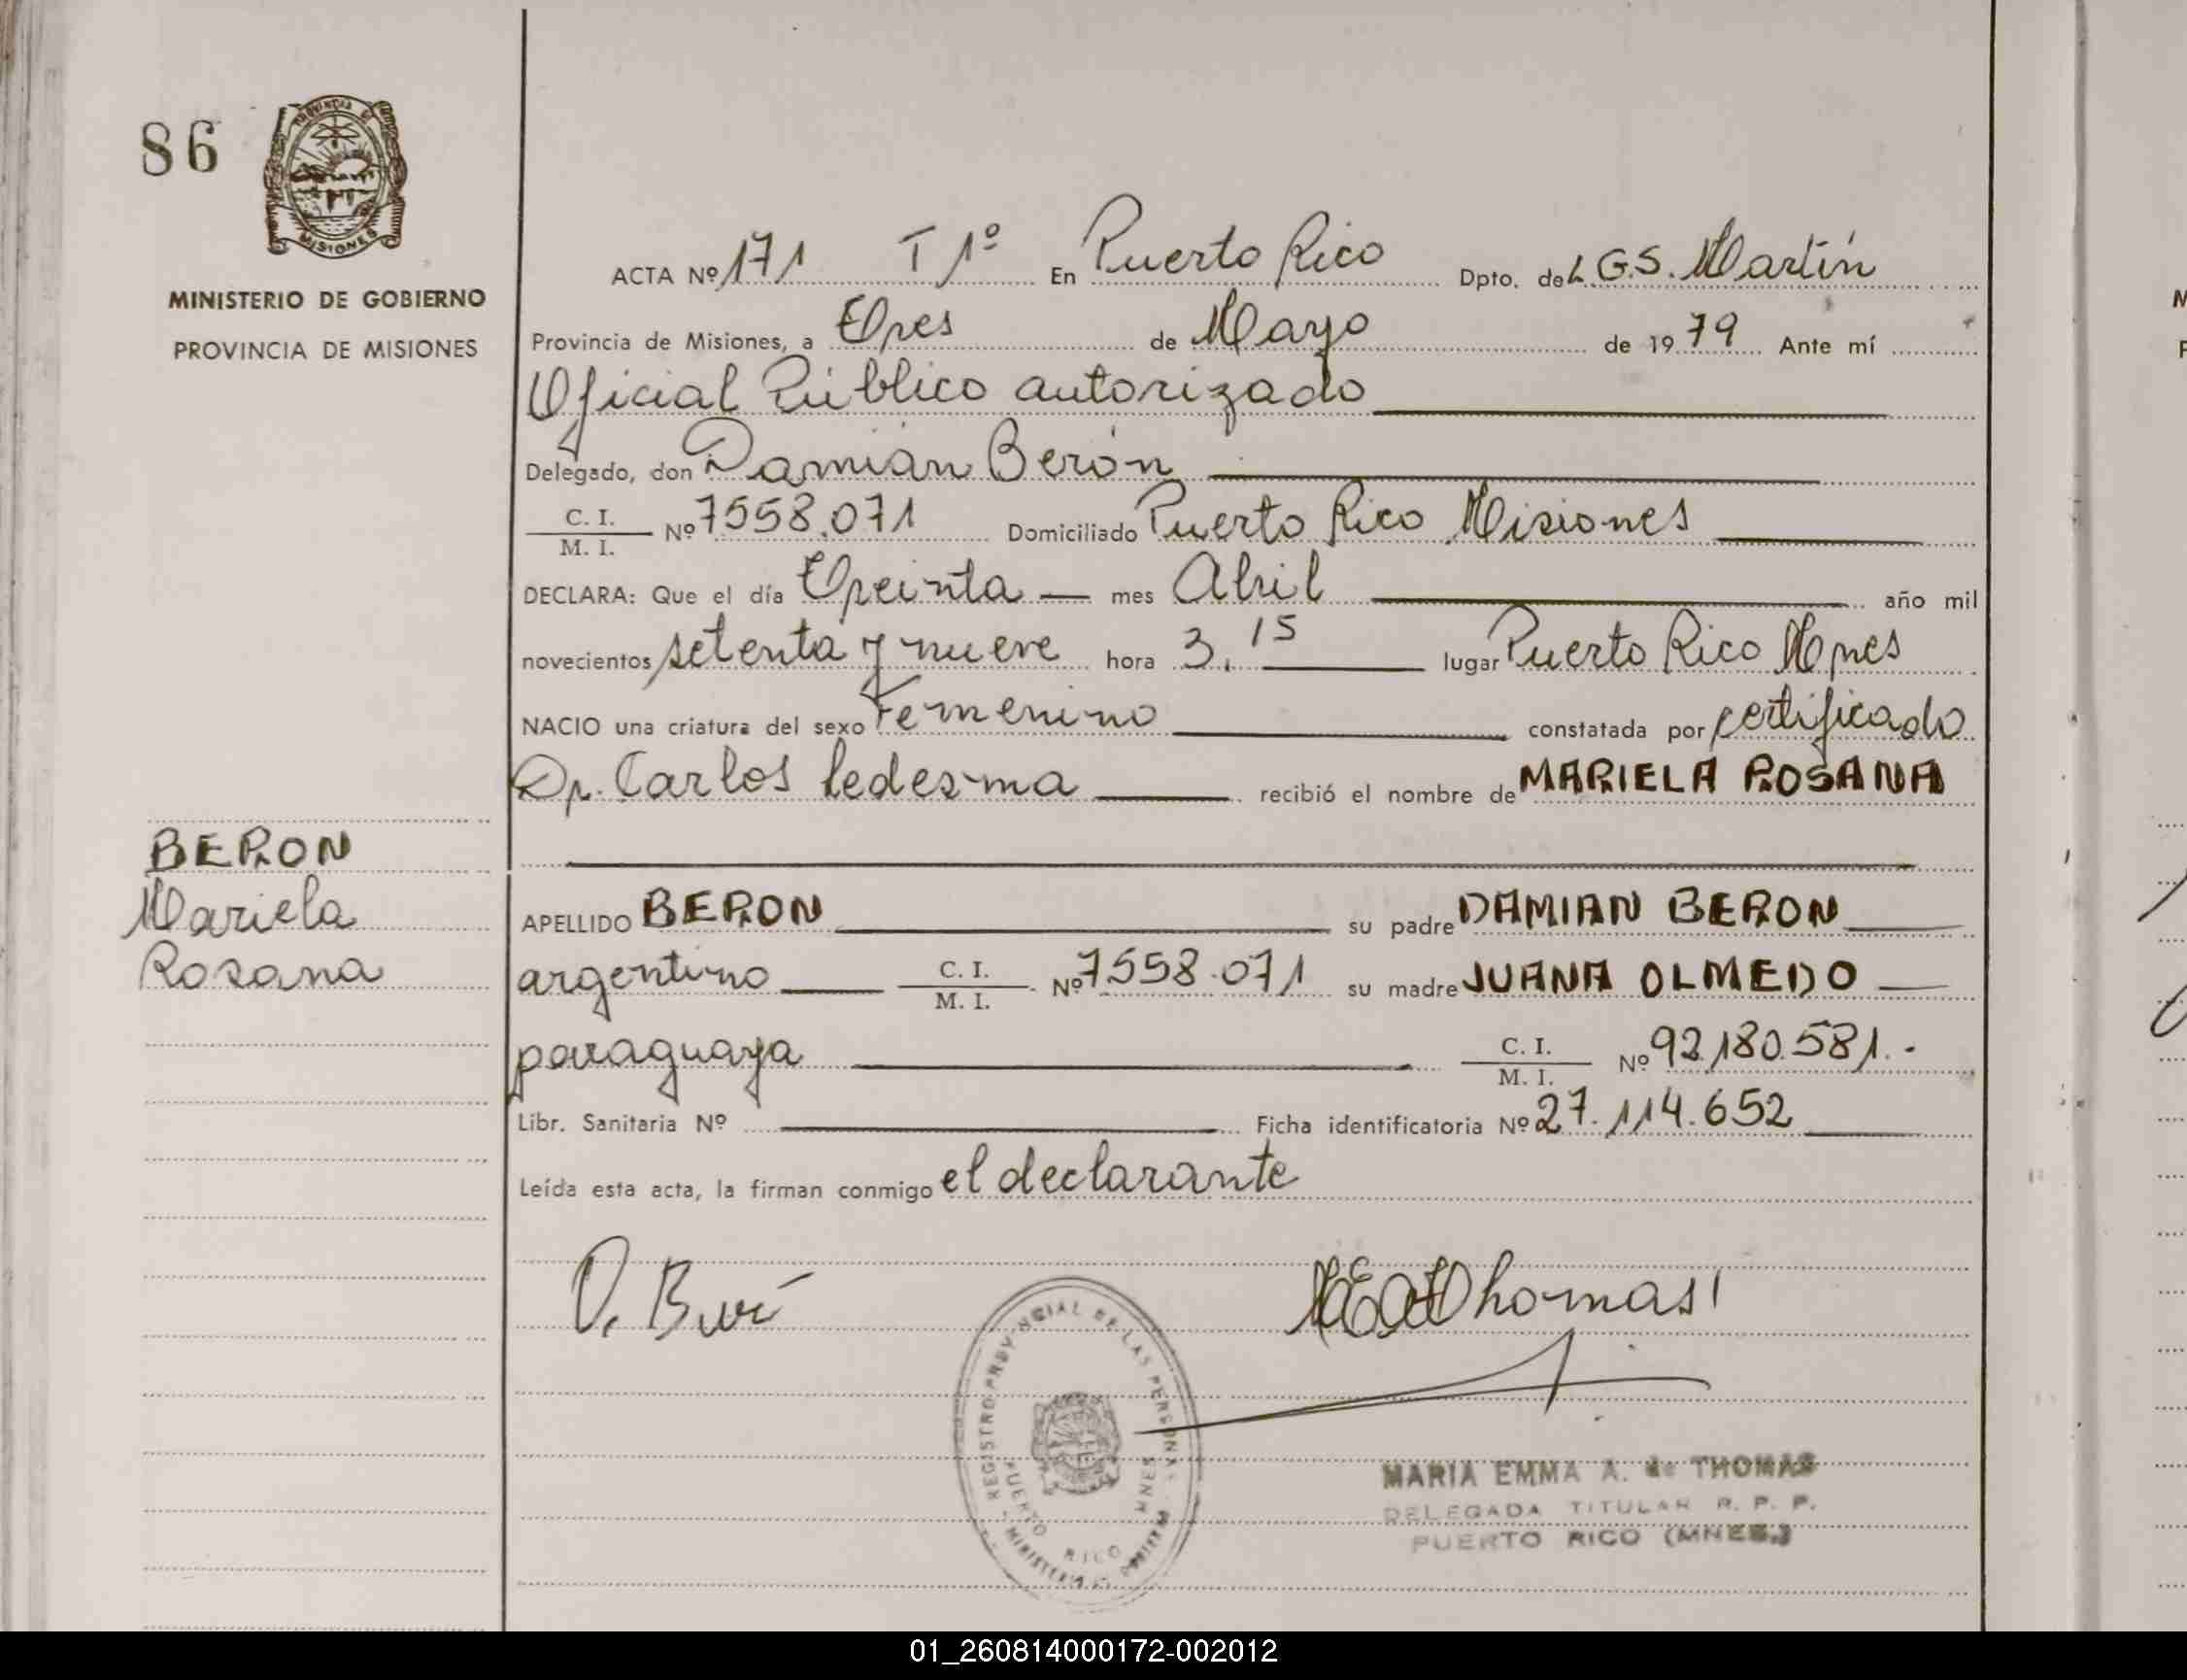 86
PROVINCIA DE
MISIONES
MINISTERIO DE GOBIERNO
PROVINCIA DE MISIONES
ACTA Nº 171 T 1º En Puerto Rico Dpto. de L.G.S. Martín
Provincia de Misiones, a Tres de Mayo de 1979 Ante mí
Oficial Público autorizado
Delegado, don Damián Berón
C. I. / M. I. Nº 7558.071 Domiciliado Puerto Rico Misiones
DECLARA: Que el día Treinta mes Abril año mil
novecientos setenta y nueve hora 3,15 lugar Puerto Rico Mnes
NACIO una criatura del sexo Femenino constatada por certificado
Dr. Carlos Ledesma recibió el nombre de MARIELA ROSANA
BERON
Mariela
Rosana
APELLIDO BERON su padre DAMIAN BERON
argentino C. I. / M. I. Nº 7558.071 su madre JUANA OLMEDO
paraguaya C. I. / M. I. Nº 92.180.581.-
Libr. Sanitaria Nº Ficha identificatoria Nº 27.114.652
Leída esta acta, la firman conmigo el declarante
REGISTRO PROVINCIAL DE LAS PERSONAS
PUERTO RICO MNES
MARIA EMMA A. de THOMAS
DELEGADA TITULAR R. P. P.
PUERTO RICO (MNES.)
01_260814000172-002012